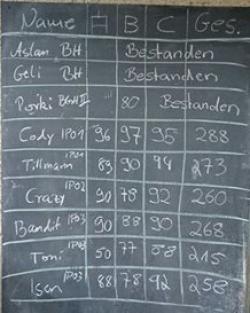 Name A B C Ges.
Aslan BH Bestanden
Geli BH Bestanden
BGH II 80 Bestanden
Cody IPO1 96 97 95 288
Tillmann IPO1 83 90 273
Crazy IPO2 90 78 92 260
Bandit IPO3 90 88 90 268
Toni IPO3 50 77 215
Isan IPO3 88 78 92 258